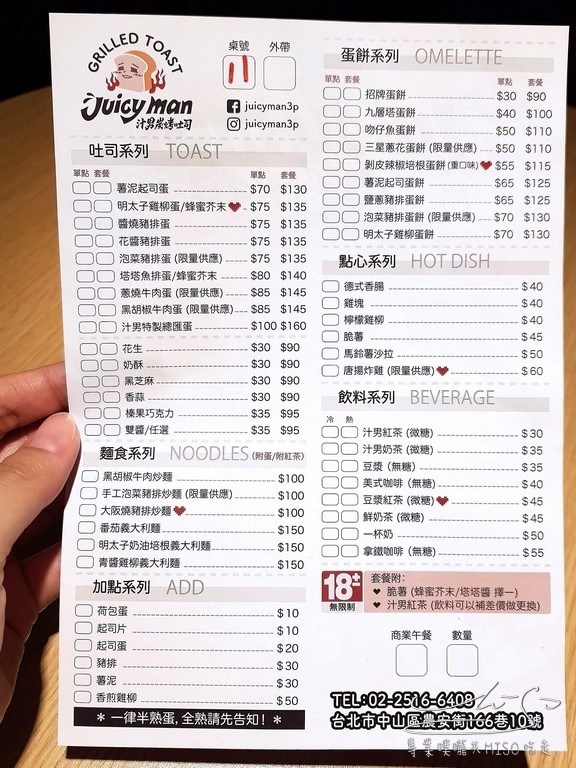 GRILLED TOAST
Juicy man
汁男炭烤吐司
桌號 外帶
juicyman3p
juicyman3p
吐司系列 TOAST
單點 套餐 單點 套餐
薯泥起司蛋 $70 $130
明太子雞柳蛋/蜂蜜芥末 $75 $135
醬燒豬排蛋 $75 $135
花醬豬排蛋 $75 $135
泡菜豬排蛋 (限量供應) $75 $135
塔塔魚排蛋/蜂蜜芥末 $80 $140
蔥燒牛肉蛋 (限量供應) $85 $145
黑胡椒牛肉蛋 (限量供應) $85 $145
汁男特製總匯蛋 $100 $160
花生 $30 $90
奶酥 $30 $90
黑芝麻 $30 $90
香蒜 $30 $90
榛果巧克力 $35 $95
雙醬/任選 $35 $95
麵食系列 NOODLES (附蛋/附紅茶)
黑胡椒牛肉炒麵 $100
手工泡菜豬排炒麵 (限量供應) $100
大阪燒豬排炒麵 $100
番茄義大利麵 $150
明太子奶油培根義大利麵 $150
青醬雞柳義大利麵 $150
加點系列 ADD
荷包蛋 $10
起司片 $10
起司蛋 $20
豬排 $30
薯泥 $30
香煎雞柳 $50
* 一律半熟蛋, 全熟請先告知! *
蛋餅系列 OMELETTE
單點 套餐 單點 套餐
招牌蛋餅 $30 $90
九層塔蛋餅 $40 $100
吻仔魚蛋餅 $50 $110
三星蔥花蛋餅 (限量供應) $50 $110
剝皮辣椒培根蛋餅 (重口味) $55 $115
薯泥起司蛋餅 $65 $125
鹽蔥豬排蛋餅 $65 $125
泡菜豬排蛋餅 (限量供應) $70 $130
明太子雞柳蛋餅 $70 $130
點心系列 HOT DISH
德式香腸 $40
雞塊 $40
檸檬雞柳 $40
脆薯 $45
馬鈴薯沙拉 $50
唐揚炸雞 (限量供應) $60
飲料系列 BEVERAGE
冷 熱
汁男紅茶 (微糖) $30
汁男奶茶 (微糖) $35
豆漿 (無糖) $35
美式咖啡 (無糖) $40
豆漿紅茶 (微糖) $45
鮮奶茶 (微糖) $45
一杯奶 $50
拿鐵咖啡 (無糖) $55
18±
無限制
套餐附:
脆薯 (蜂蜜芥末/塔塔醬 擇一)
汁男紅茶 (飲料可以補差價做更換)
商業午餐 數量
TEL:02-2516-6408
台北市中山區農安街166巷10號